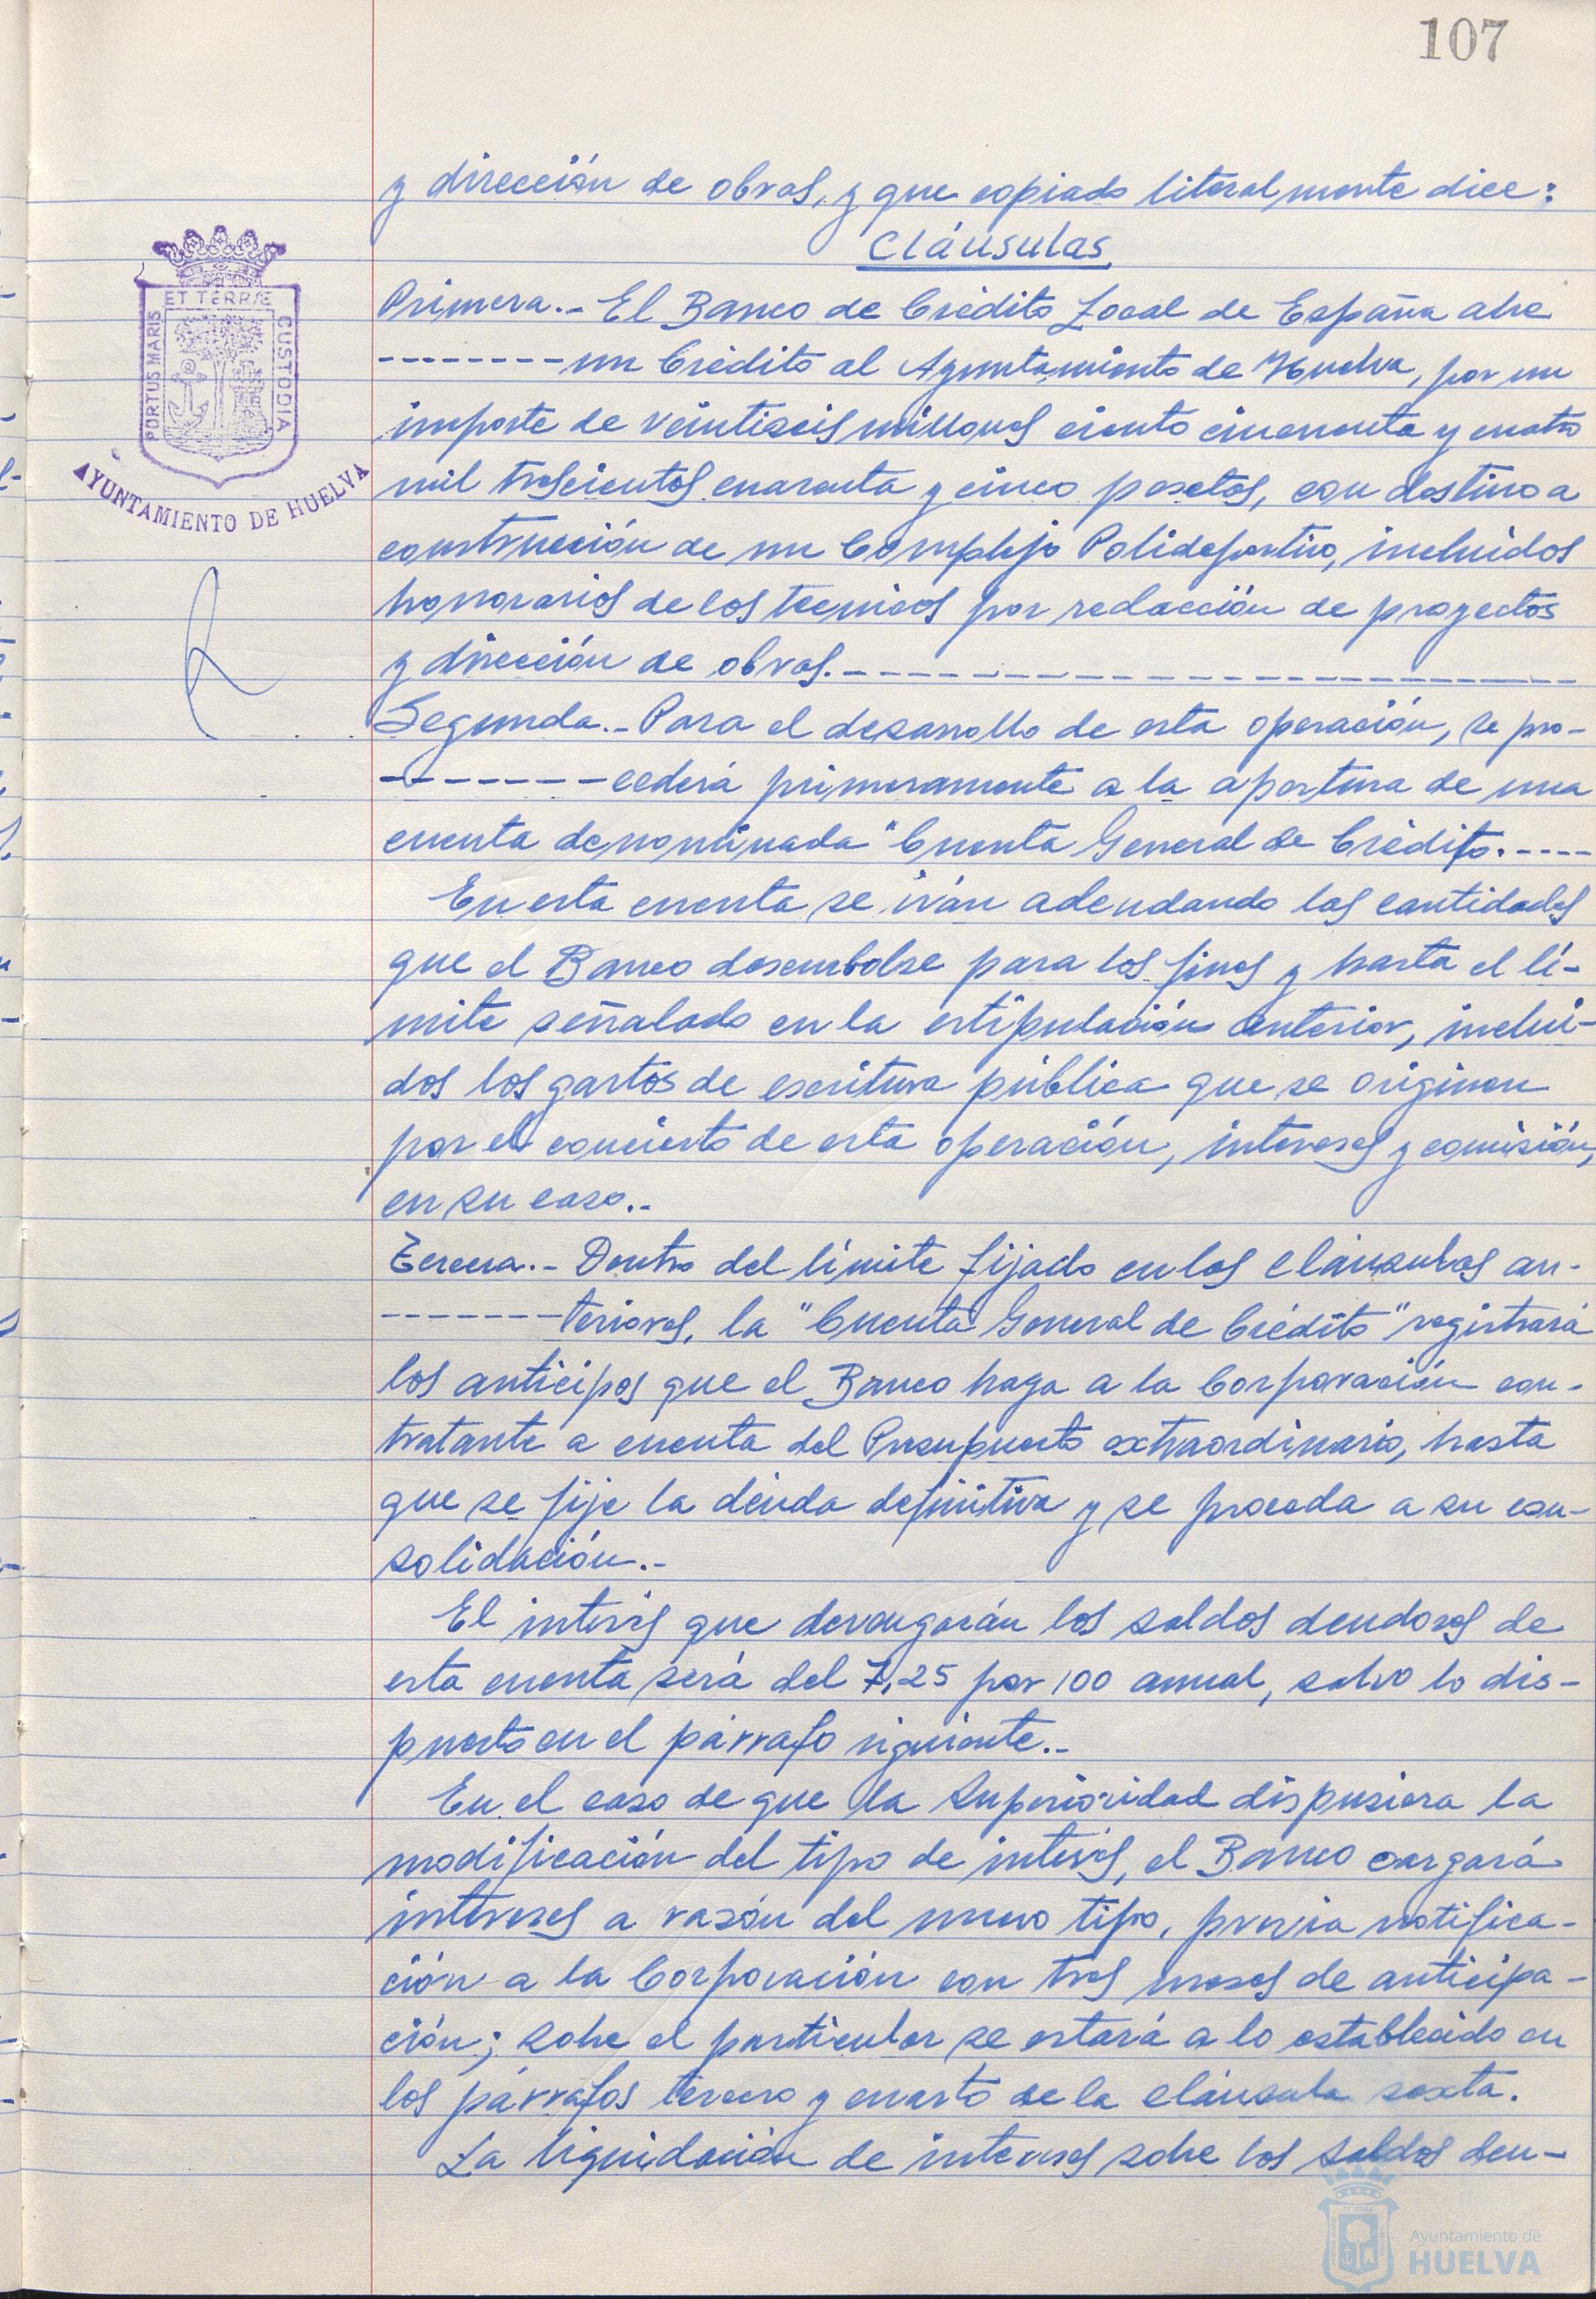 107
y dirección de obras, y que copiado literalmente dice:
Cláusulas
Primera.- El Banco de Crédito Local de España abre
-------- un Crédito al Ayuntamiento de Huelva, por un
importe de veintiseis millones ciento cincuenta y cuatro
mil trescientos cuarenta y cinco pesetas, con destino a
construcción de un Complejo Polideportivo, incluidos
honorarios de los técnicos por redacción de proyectos
y dirección de obras.--------------------
Segunda.- Para el desarrollo de esta operación, se pro-
-------- cederá primeramente a la apertura de una
cuenta denominada "Cuenta General de Crédito.----
En esta cuenta se irán adeudando las cantidades
que el Banco desembolse para los fines y hasta el lí-
mite señalado en la estipulación anterior, inclui-
dos los gastos de escritura pública que se originen
por el concierto de esta operación, intereses y comisión,
en su caso.-
Tercera.- Dentro del límite fijado en las cláusulas an-
-------- teriores, la "Cuenta General de Crédito" registrará
los anticipos que el Banco haga a la Corporación con-
tratante a cuenta del Presupuesto extraordinario, hasta
que se fije la deuda definitiva y se proceda a su con-
solidación.-
El interés que devengarán los saldos deudores de
esta cuenta será del 7,25 por 100 anual, salvo lo dis-
puesto en el párrafo siguiente.-
En el caso de que la Superioridad dispusiera la
modificación del tipo de interés, el Banco cargará
intereses a razón del nuevo tipo, previa notifica-
ción a la Corporación con tres meses de anticipa-
ción; sobre el particular se estará a lo establecido en
los párrafos tercero y cuarto de la cláusula sexta.
La liquidación de intereses sobre los saldos deu-
PORTUS MARIS
ET TERRÆ
CUSTODIA
AYUNTAMIENTO DE HUELVA
Ayuntamiento de
HUELVA